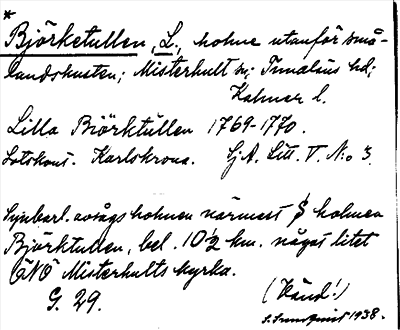 *
Björketullen, L., holme utanför små-
landskusten; Misterhult sn; Tunaläns hd;
Kalmar l.
Lilla Biörktullen 1769-1770.
Lotskont. Karlskrona. Sj.A. Litt. V. N:o 3.
Synberl. avsågs holmen närmast S holmen
Björktullen, bel. 10 1/2 km. något litet
ÖNÖ Misterhults kyrka.
G. 29. (Vänd!)
1938.